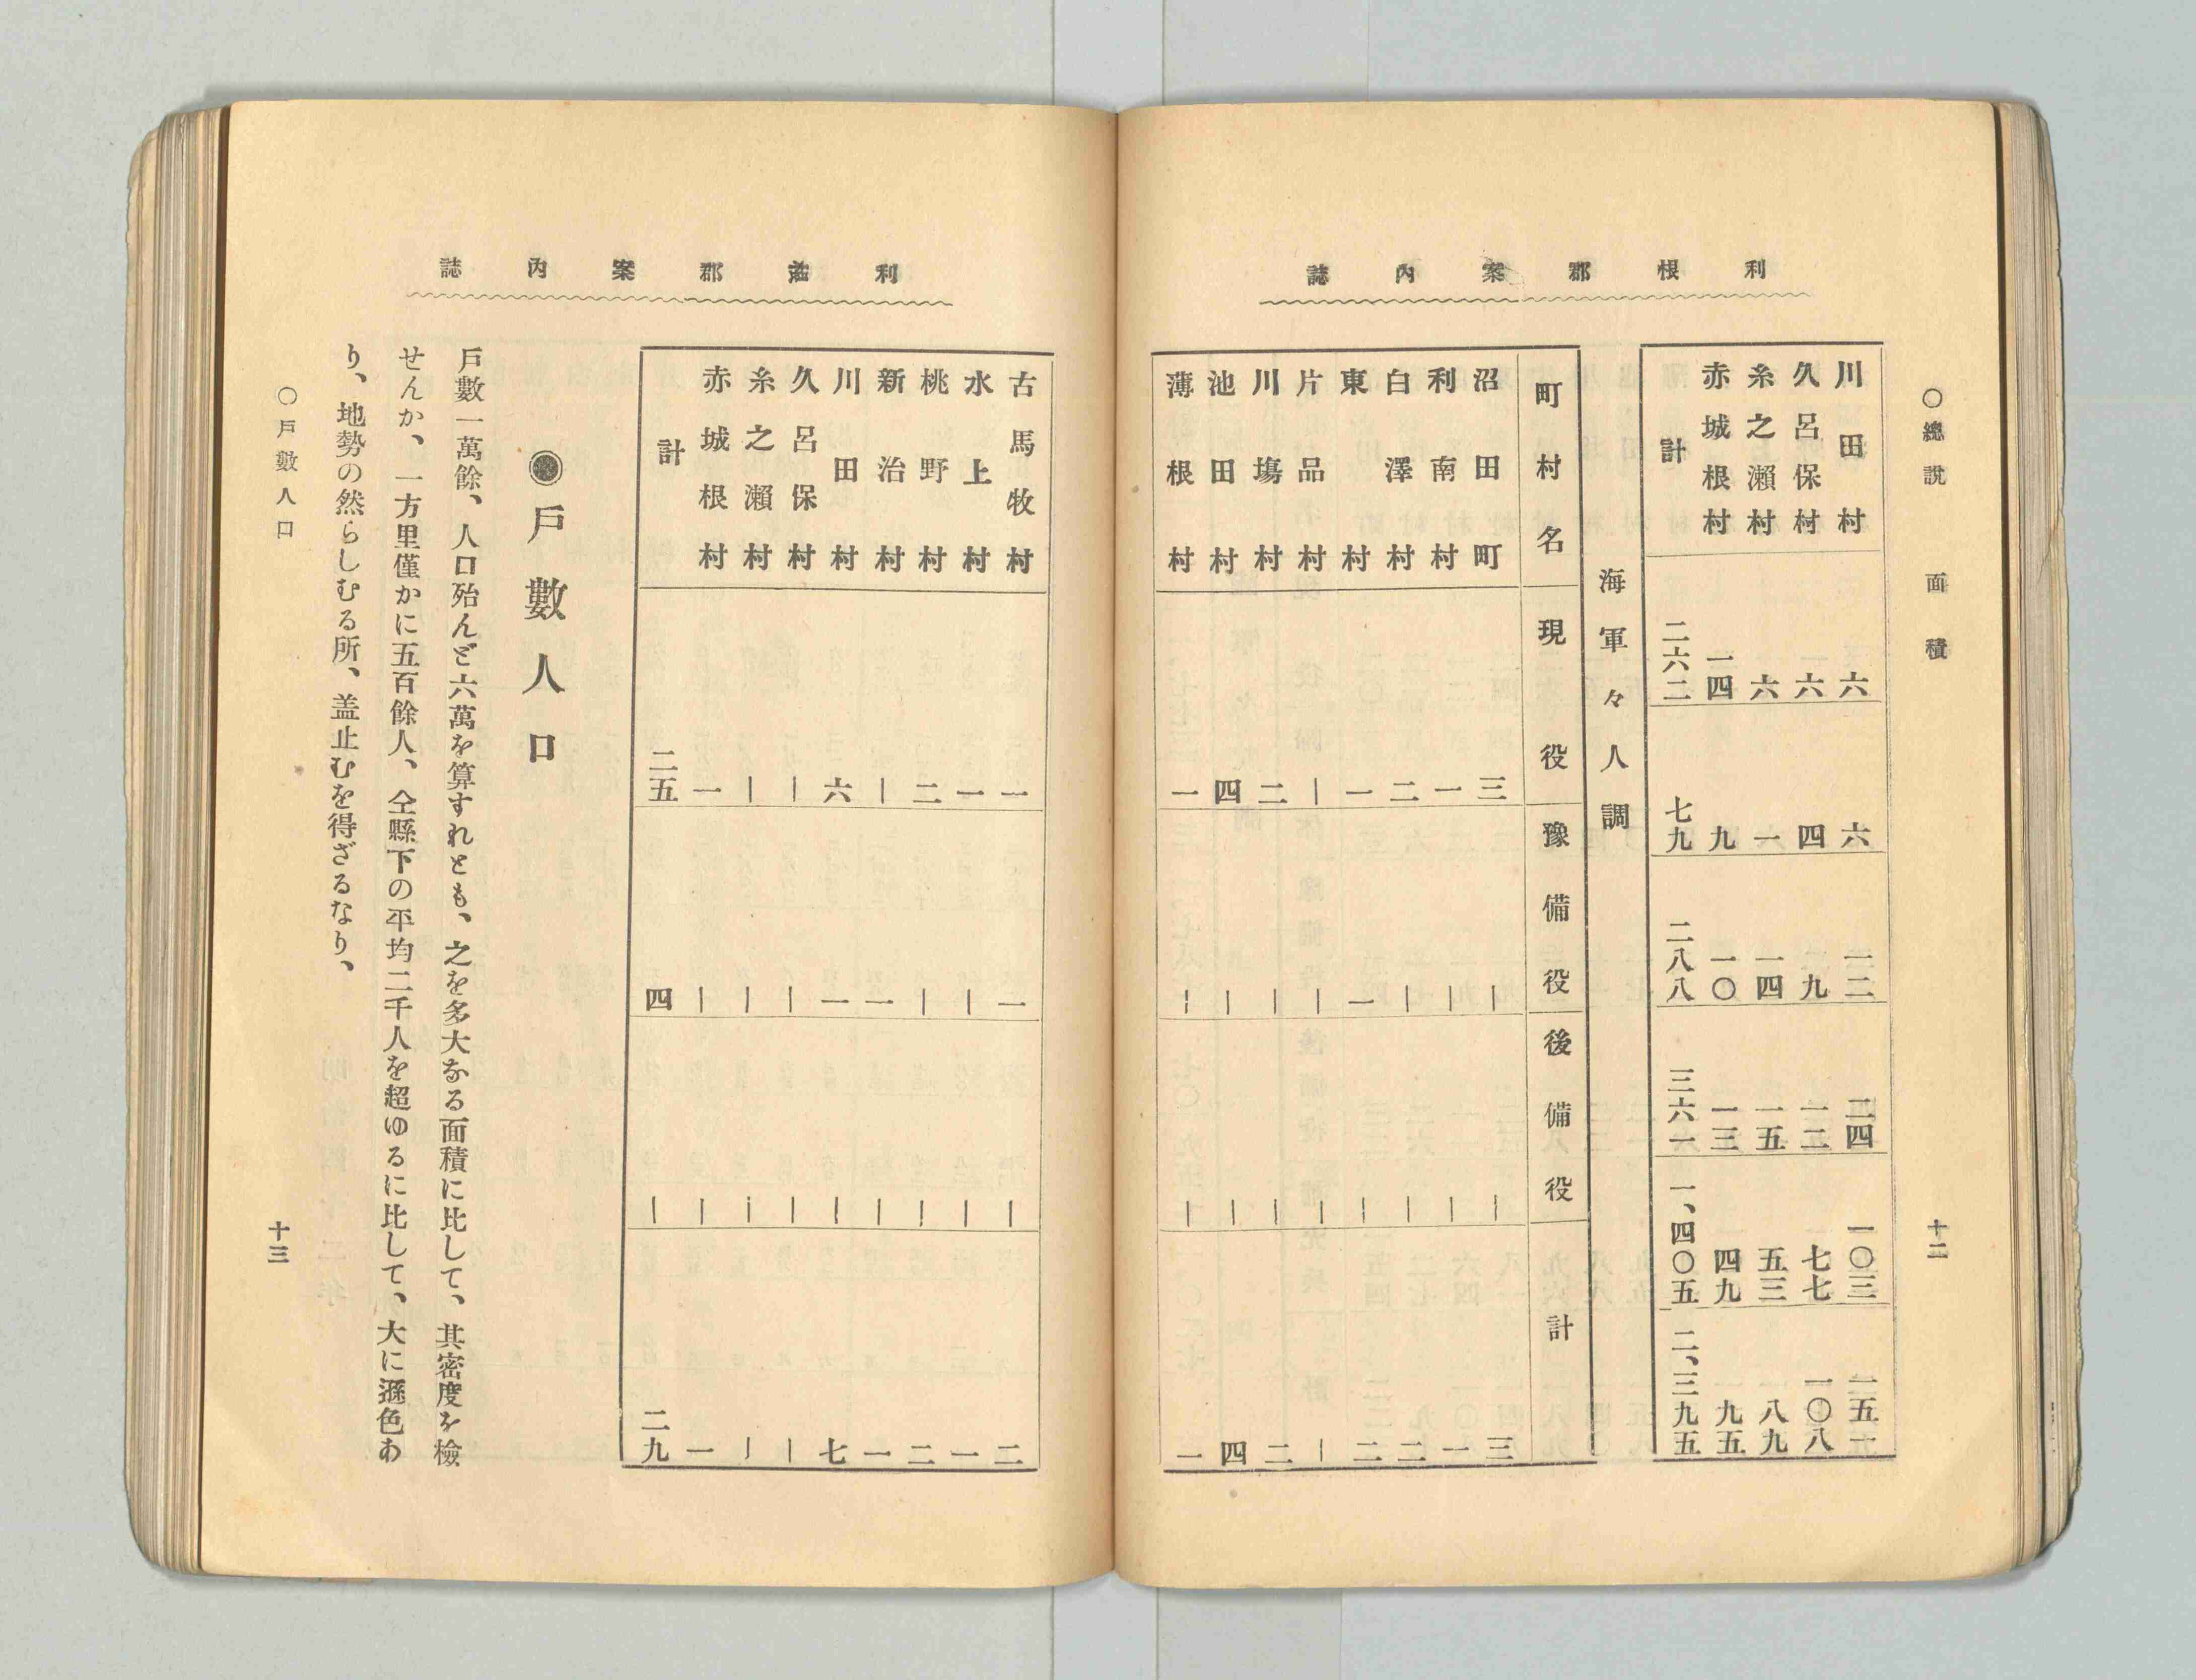 利根郡案內誌
○總說 面積
川田村 六 六 一二 二四 一〇三 一五一
久呂保村 六 四 九 一二 七七 一〇八
糸之瀨村 六 一 一四 一五 五三 八九
赤城根村 一四 九 一〇 一三 四九 九五
計 二六二 七九 二八八 三六一 一、四〇五 二、三九五
海軍々人調
町村名 現役 豫備役 後備役 計
沼田町 三 ｜ ｜ 三
利南村 一 ｜ ｜ 一
白澤村 二 ｜ ｜ 二
東村 一 一 ｜ 二
片品村 ｜ ｜ ｜ ｜
川塲村 二 ｜ ｜ 二
池田村 四 ｜ ｜ 四
薄根村 一 ｜ ｜ 一
十二
利根郡案內誌
古馬牧村 一 一 ｜ 二
水上村 一 ｜ ｜ 一
桃野村 二 ｜ ｜ 二
新治村 ｜ 一 ｜ 一
川田村 六 一 ｜ 七
久呂保村 ｜ ｜ ｜ ｜
糸之瀨村 ｜ ｜ ｜ ｜
赤城根村 一 ｜ ｜ 一
計 二五 四 ｜ 二九
◉戶數人口
戶數一萬餘、人口殆んど六萬を算すれとも、之を多大なる面積に比して、其密度を檢
せんか、一方里僅かに五百餘人、仝縣下の平均二千人を超ゆるに比して、大に遜色あ
り、地勢の然らしむる所、盖止むを得ざるなり、
○戶數人口
十三